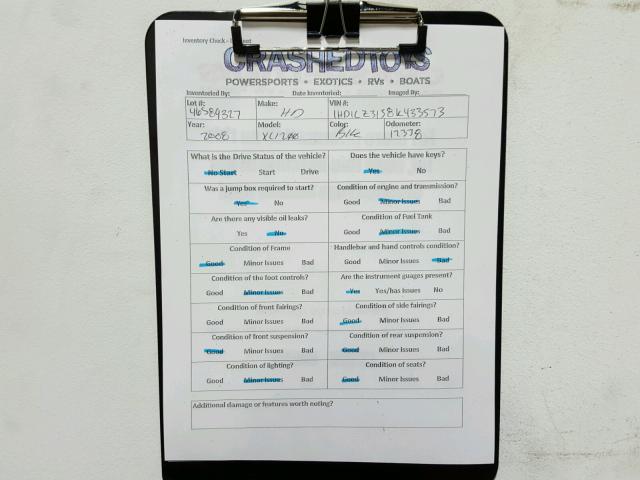 Inventory Check -
CRASHEDTOYS
POWERSPORTS • EXOTICS • RVs • BOATS
Inventoried By: Date Inventoried: Imaged By:
Lot #: Make: VIN #:
46589327 HD 1HD1CZ3158K433573
Year: Model: Color: Odometer:
2008 XL1200 Blk 17378
What is the Drive Status of the vehicle? Does the vehicle have keys?
No Start Start Drive Yes No
Was a jump box required to start? Condition of engine and transmission?
Yes No Good Minor Issues Bad
Are there any visible oil leaks? Condition of Fuel Tank
Yes No Good Minor Issues Bad
Condition of Frame Handlebar and hand controls condition?
Good Minor Issues Bad Good Minor Issues Bad
Condition of the foot controls? Are the instrument guages present?
Good Minor Issues Bad Yes Yes/has Issues No
Condition of front fairings? Condition of side fairings?
Good Minor Issues Bad Good Minor Issues Bad
Condition of front suspension? Condition of rear suspension?
Good Minor Issues Bad Good Minor Issues Bad
Condition of lighting? Condition of seats?
Good Minor Issues Bad Good Minor Issues Bad
Additional damage or features worth noting?